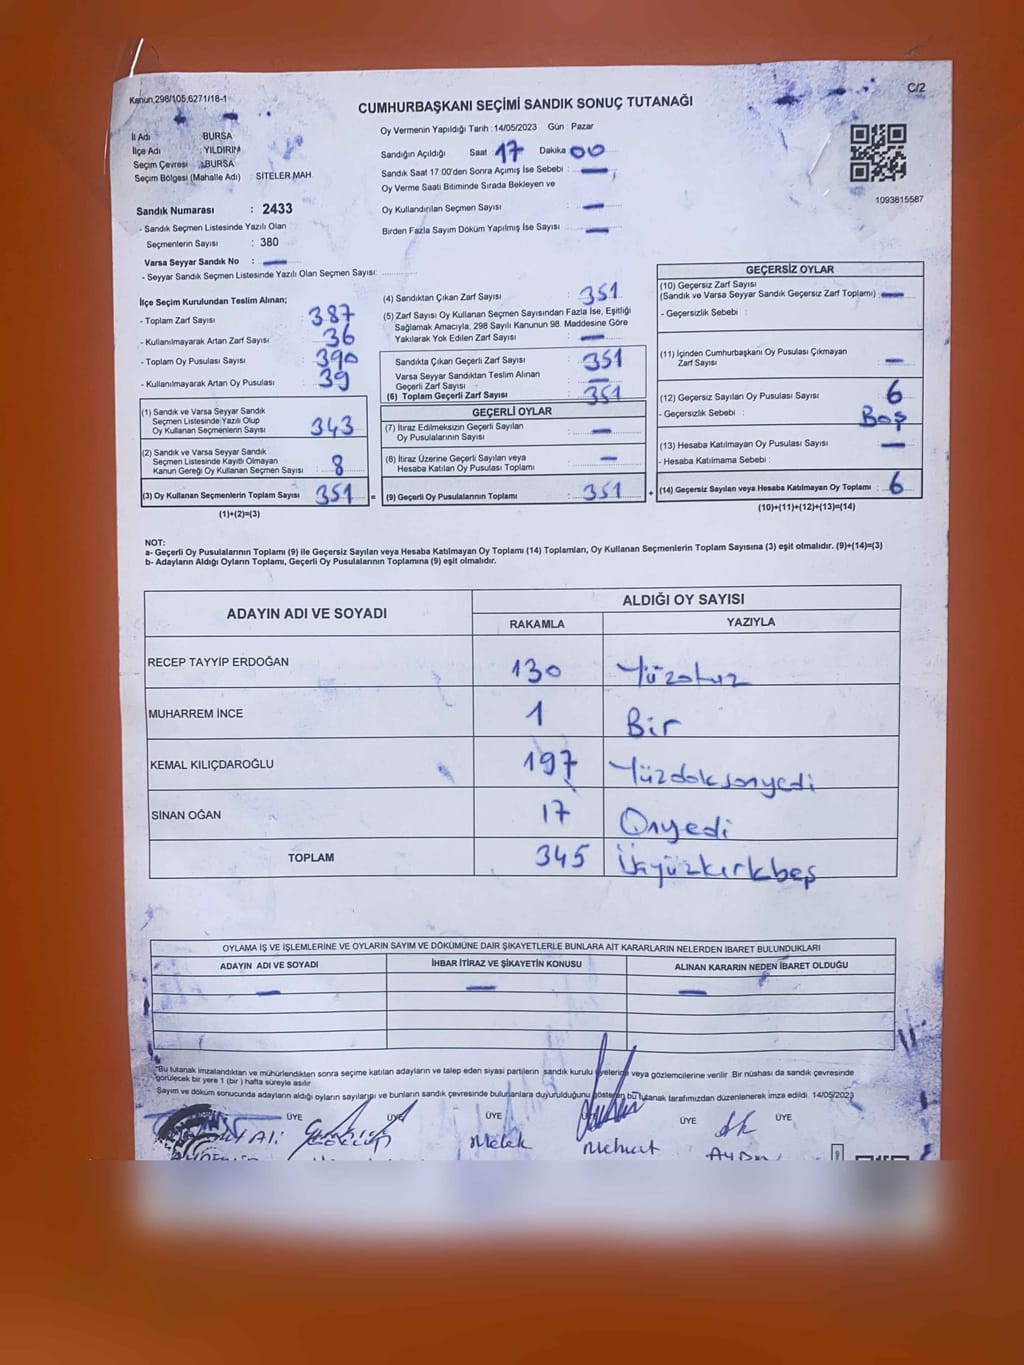 Kanun,298/105,6271/18-1
C/2
CUMHURBAŞKANI SEÇİMİ SANDIK SONUÇ TUTANAĞI
İl Adı : BURSA
İlçe Adı : YILDIRIM
Seçim Çevresi : BURSA
Seçim Bölgesi (Mahalle Adı) SİTELER MAH
Sandık Numarası : 2433
- Sandık Seçmen Listesinde Yazılı Olan
Seçmenlerin Sayısı : 380
Varsa Seyyar Sandık No : —
- Seyyar Sandık Seçmen Listesinde Yazılı Olan Seçmen Sayısı: ..............
Oy Vermenin Yapıldığı Tarih :14/05/2023 Gün : Pazar
Sandığın Açıldığı Saat 17 Dakika 00
Sandık Saat 17 00'den Sonra Açımış İse Sebebi : —
Oy Verme Saati Bitiminde Sırada Bekleyen ve
Oy Kullandırılan Seçmen Sayısı : —
Birden Fazla Sayım Döküm Yapılmış İse Sayısı : —
1093815587
İlçe Seçim Kurulundan Teslim Alınan;
- Toplam Zarf Sayısı : 387
- Kullanılmayarak Artan Zarf Sayısı : 36
- Toplam Oy Pusulası Sayısı : 390
- Kullanılmayarak Artan Oy Pusulası : 39
(1) Sandık ve Varsa Seyyar Sandık
Seçmen Listesinde Yazılı Olup
Oy Kullanan Seçmenlerin Sayısı : 343
(2) Sandık ve Varsa Seyyar Sandık
Seçmen Listesinde Kayıtlı Olmayan
Kanun Gereği Oy Kullanan Seçmen Sayısı : 8
(3) Oy Kullanan Seçmenlerin Toplam Sayısı : 351 =
(1)+(2)=(3)
(4) Sandıktan Çıkan Zarf Sayısı : 351
(5) Zarf Sayısı Oy Kullanan Seçmen Sayısından Fazla İse, Eşitliği
Sağlamak Amacıyla, 298 Sayılı Kanunun 98. Maddesine Göre
Yakılarak Yok Edilen Zarf Sayısı : —
Sandıkta Çıkan Geçerli Zarf Sayısı : 351
Varsa Seyyar Sandıktan Teslim Alınan
Geçerli Zarf Sayısı : —
(6) Toplam Geçerli Zarf Sayısı : 351
GEÇERLİ OYLAR
(7) İtiraz Edilmeksizin Geçerli Sayılan
Oy Pusulalarının Sayısı : —
(8) İtiraz Üzerine Geçerli Sayılan veya
Hesaba Katılan Oy Pusulası Toplamı : —
(9) Geçerli Oy Pusulalarının Toplamı : 351 +
GEÇERSİZ OYLAR
(10) Geçersiz Zarf Sayısı
(Sandık ve Varsa Seyyar Sandık Geçersiz Zarf Toplamı) : —
- Geçersizlik Sebebi :
(11) İçinden Cumhurbaşkanı Oy Pusulası Çıkmayan
Zarf Sayısı : —
(12) Geçersiz Sayılan Oy Pusulası Sayısı : 6
- Geçersizlik Sebebi : Boş
(13) Hesaba Katılmayan Oy Pusulası Sayısı : —
- Hesaba Katılmama Sebebi :
(14) Geçersiz Sayılan veya Hesaba Katılmayan Oy Toplamı : 6
(10)+(11)+(12)+(13)=(14)
NOT:
a- Geçerli Oy Pusulalarının Toplamı (9) ile Geçersiz Sayılan veya Hesaba Katılmayan Oy Toplamı (14) Toplamları, Oy Kullanan Seçmenlerin Toplam Sayısına (3) eşit olmalıdır. (9)+(14)=(3)
b- Adayların Aldığı Oyların Toplamı, Geçerli Oy Pusulalarının Toplamına (9) eşit olmalıdır.
ADAYIN ADI VE SOYADI ALDIĞI OY SAYISI
RAKAMLA YAZIYLA
RECEP TAYYİP ERDOĞAN 130 Yüzotuz
MUHARREM İNCE 1 Bir
KEMAL KILIÇDAROĞLU 197 Yüzdoksanyedi
SİNAN OĞAN 17 Onyedi
TOPLAM 345 Üçyüzkırkbeş
OYLAMA İŞ VE İŞLEMLERİNE VE OYLARIN SAYIM VE DÖKÜMÜNE DAİR ŞİKAYETLERLE BUNLARA AİT KARARLARIN NELERDEN İBARET BULUNDUKLARI
ADAYIN ADI VE SOYADI İHBAR İTİRAZ VE ŞİKAYETİN KONUSU ALINAN KARARIN NEDEN İBARET OLDUĞU
— — —
*Bu tutanak imzalandıktan ve mühürlendikten sonra seçime katılan adayların ve talep eden siyasi partilerin sandık kurulu üyelerine veya gözlemcilerine verilir. Bir nüshası da sandık çevresinde
görülecek bir yere 1 (bir) hafta süreyle asılır
Sayım ve döküm sonucunda adayların aldığı oyların sayılarını ve bunların sandık çevresinde bulunanlara duyurulduğunu gösteren bu tutanak tarafımızdan düzenlenerek imza edildi. 14/05/2023
ÜYE ÜYE ÜYE ÜYE ÜYE
Ali Melek Mehmet